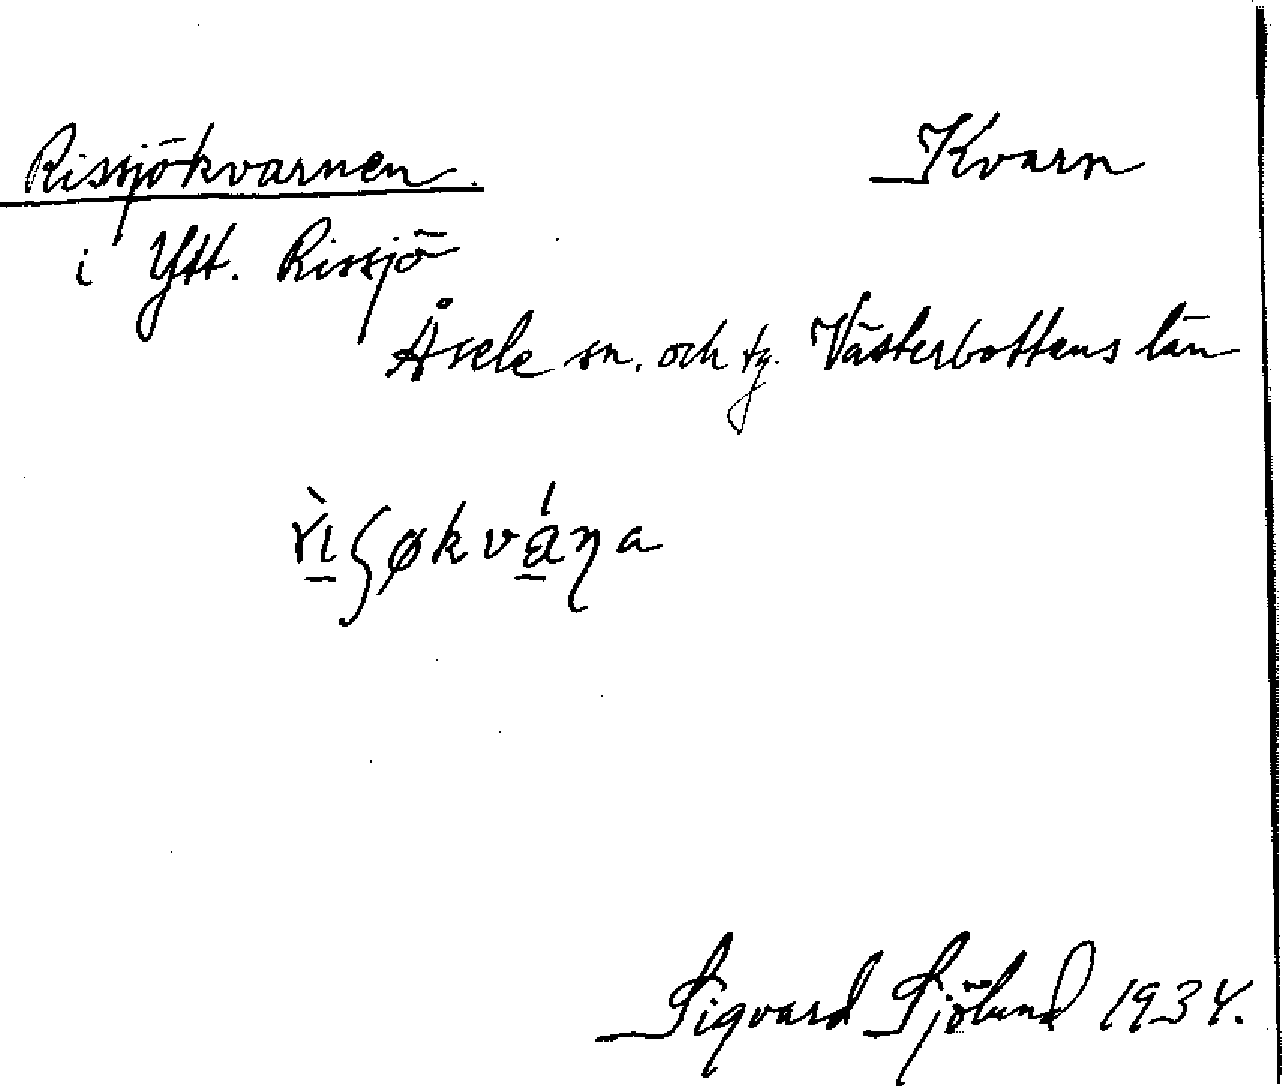 Rissjökvarnen. Kvarn
i Ytt. Rissjö
Åsele sn. och tg. Västerbottens län
rı̀ʃøkvána
Sigvard Sjölund 1934.